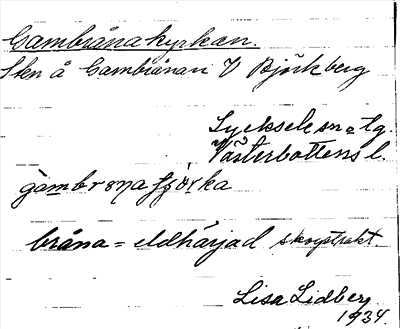 Gambrånakyrkan.
Skn å Gambrånan V Björkberg
Lycksele sn o tg.
Västerbottens l.
gàmbrɷnafjörka
bråna = eldhärjad skogstrakt.
Lisa Lidberg
1934.